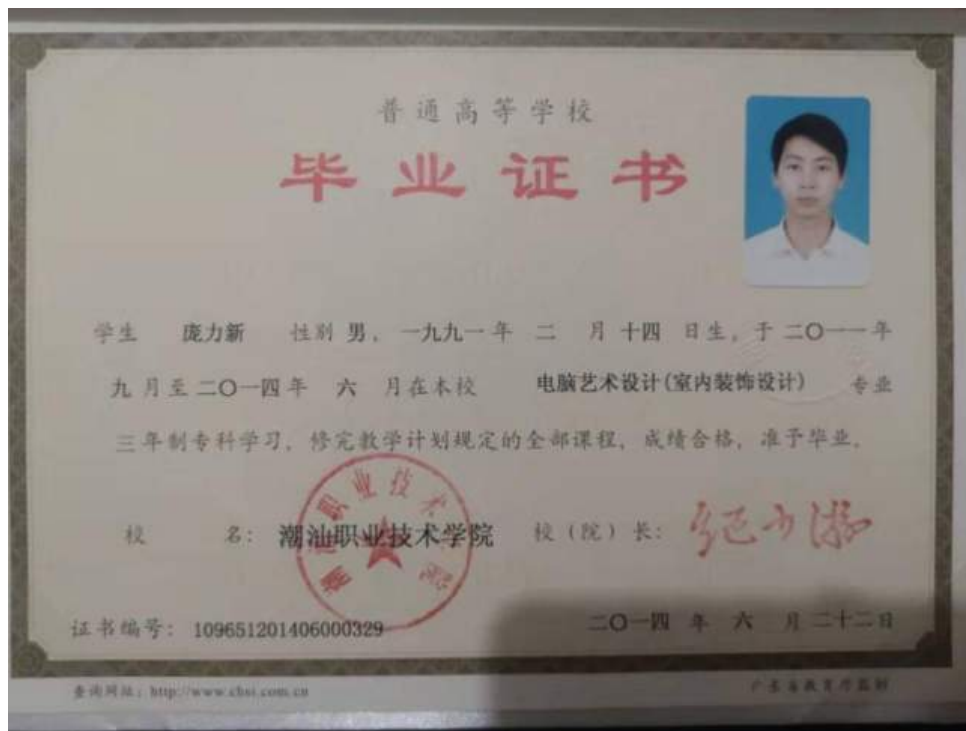 普通高等学校
毕业证书
学生 庞力新 性别 男，一九九一年 二 月 十四 日生，于 二〇一一年
九 月至 二〇一四年 六 月在本校 电脑艺术设计(室内装饰设计) 专业
三年制专科学习，修完教学计划规定的全部课程，成绩合格，准予毕业。
潮汕职业技术学院
校 名：潮汕职业技术学院 校（院）长：
证书编号：109651201406000329 二〇一四 年 六 月 二十二日
查询网址：http://www.chsi.com.cn 广东省教育厅监制